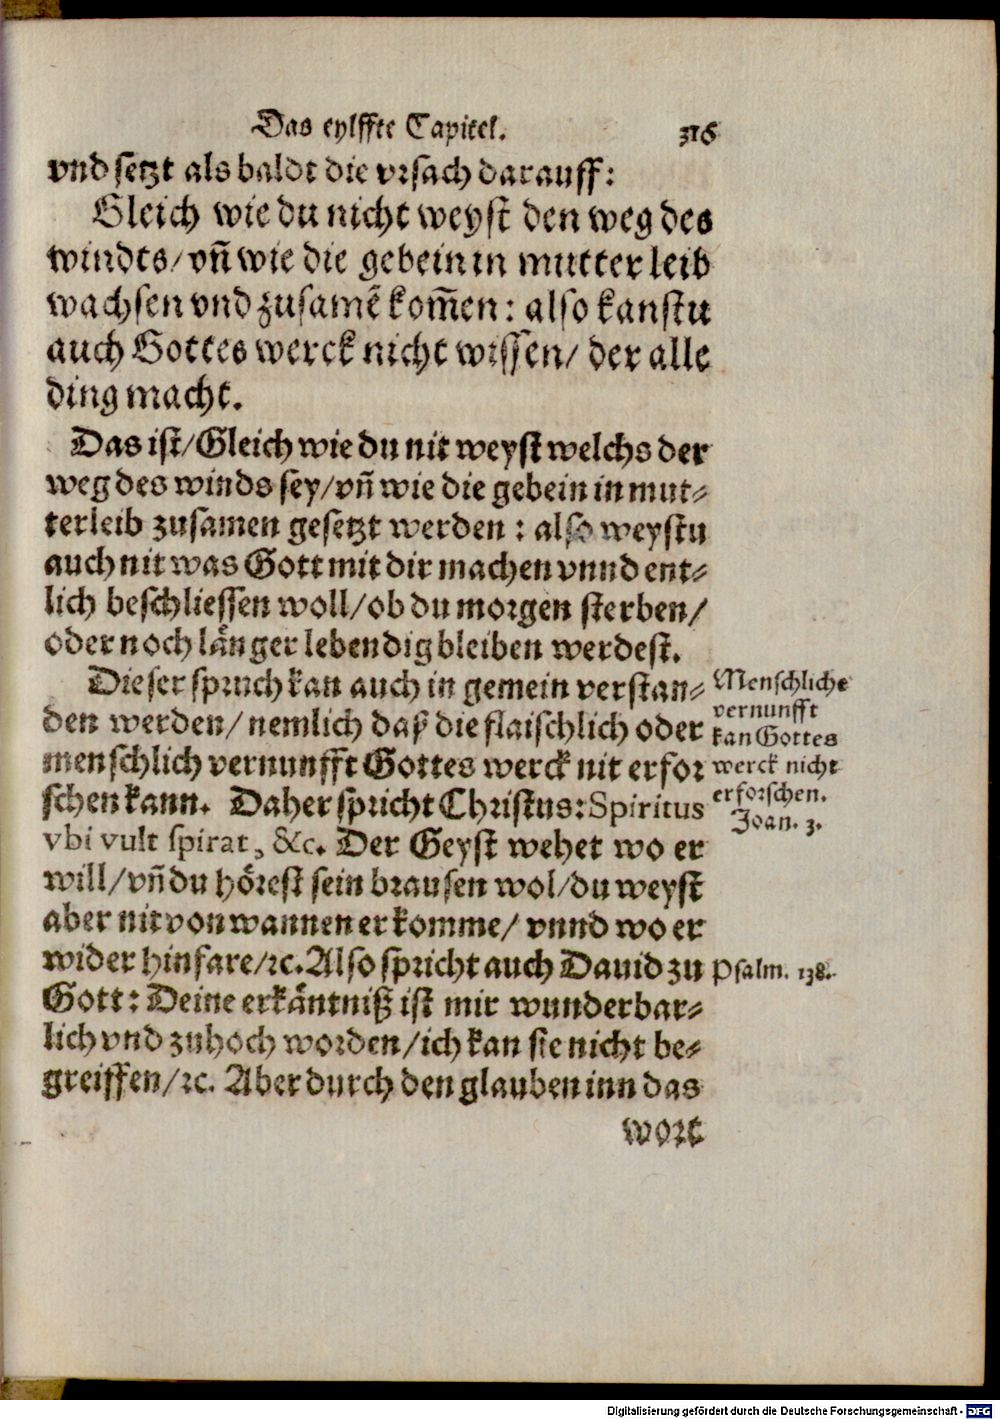 Das eylffte Capitel. 316
vnd setzt als baldt die vrsach darauff:
Gleich wie du nicht weyst den weg des
windts/ vñ wie die gebein in mutter leib
wachsen vnd zusamẽ kom̃en: also kanstu
auch Gottes werck nicht wissen/ der alle
ding macht.
Das ist/ Gleich wie du nit weyst welchs der
weg des winds sey/ vñ wie die gebein in mut⸗
terleib zusamen gesetzt werden: also weystu
auch nit was Gott mit dir machen vnnd ent⸗
lich beschliessen woll/ ob du morgen sterben/
oder noch länger lebendig bleiben werdest.
Dieser spruch kan auch in gemein verstan⸗
den werden/ nemlich daß die flaischlich oder
menschlich vernunfft Gottes werck nit erfor
schen kann. Daher spricht Christus: Spiritus
vbi vult spirat, &c. Der Geyst wehet wo er
will/ vñ du hörest sein brausen wol/ du weyst
aber nit von wannen er komme/ vnnd wo er
wider hinfare/ ꝛc. Also spricht auch Dauid zu
Gott: Deine erkäntniß ist mir wunderbar⸗
lich vnd zuhoch worden/ ich kan sie nicht be⸗
greiffen/ ꝛc. Aber durch den glauben inn das
wort
Menschliche
vernunfft
kan Gottes
werck nicht
erforschen.
Joan. 3.
Psalm. 138.
Digitalisierung gefördert durch die Deutsche Forschungsgemeinschaft - DFG